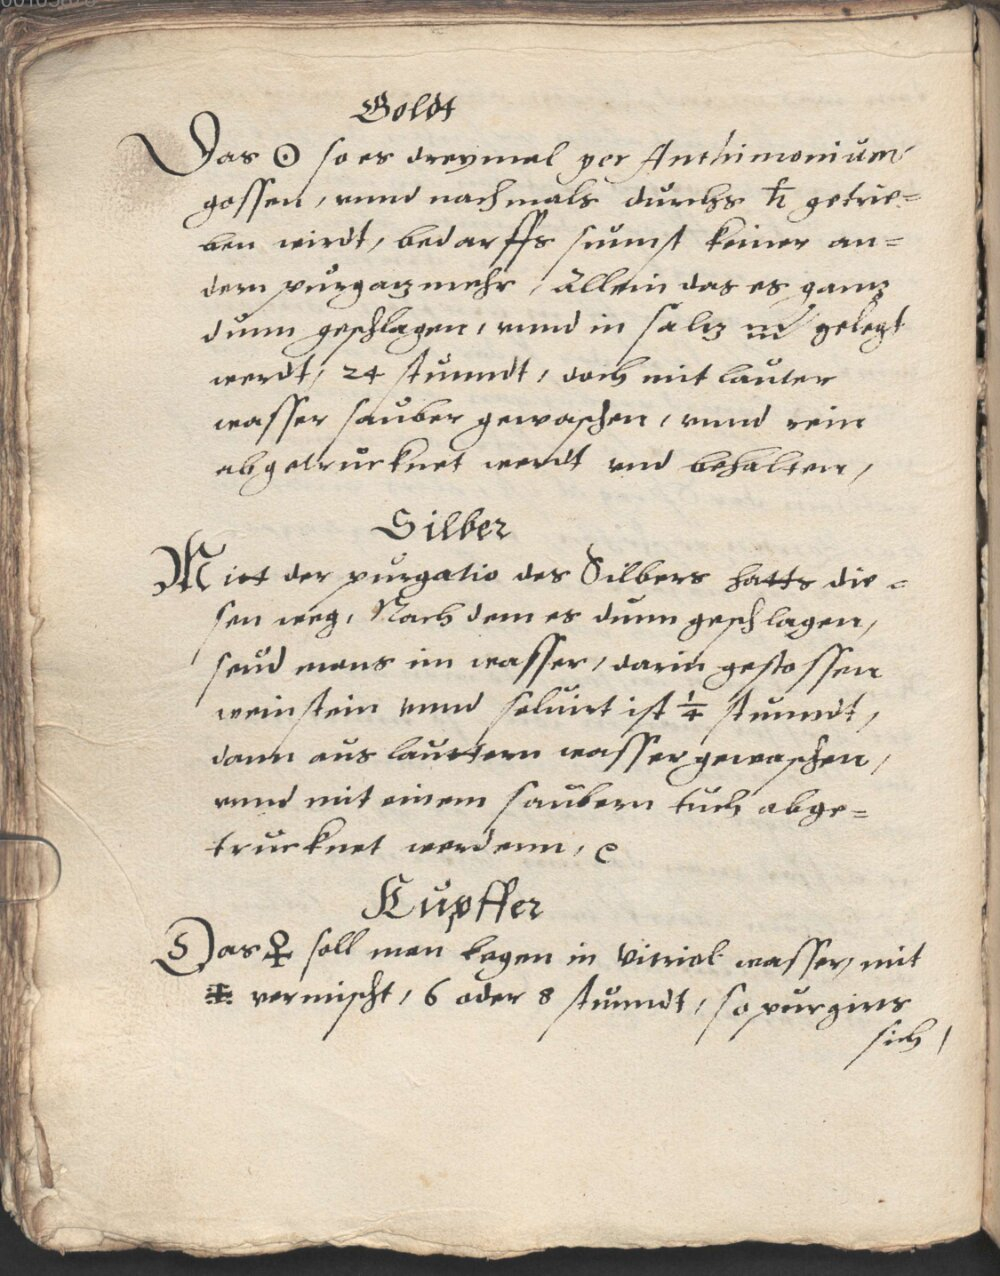 Goldt
Das ☉ so es dreymal per Anthimonium
gossen, vnnd nachmals durchs ♄ getrie=
ben wirdt, bedarffs sunnst keiner an=
dern purgatz mehr, Allein das es gantz
dunn geschlagen, vnnd in saltz gelegt
werdt, 24 stunndt, doch mit lauter
wasser sauber gewaschen, vnnd rein
abgetrucknet werdt vnd behalten,
Silber
Mitt der purgatio des Silbers hatts die=
sen weg, Nach dem es dunn geschlagen,
seud mans im wasser, darin gestossen
weinstein vnnd soluirt ist ¼ stunndt,
dann aus lauttern wasser gewaschen,
vnnd mit einem saubern tuch abge=
trucknet werdenn,
Kupffer
Das ♀ soll man legen in vitriol wasser, mit
vermischt, 6 oder 8 stunndt, so purgirts
sich,